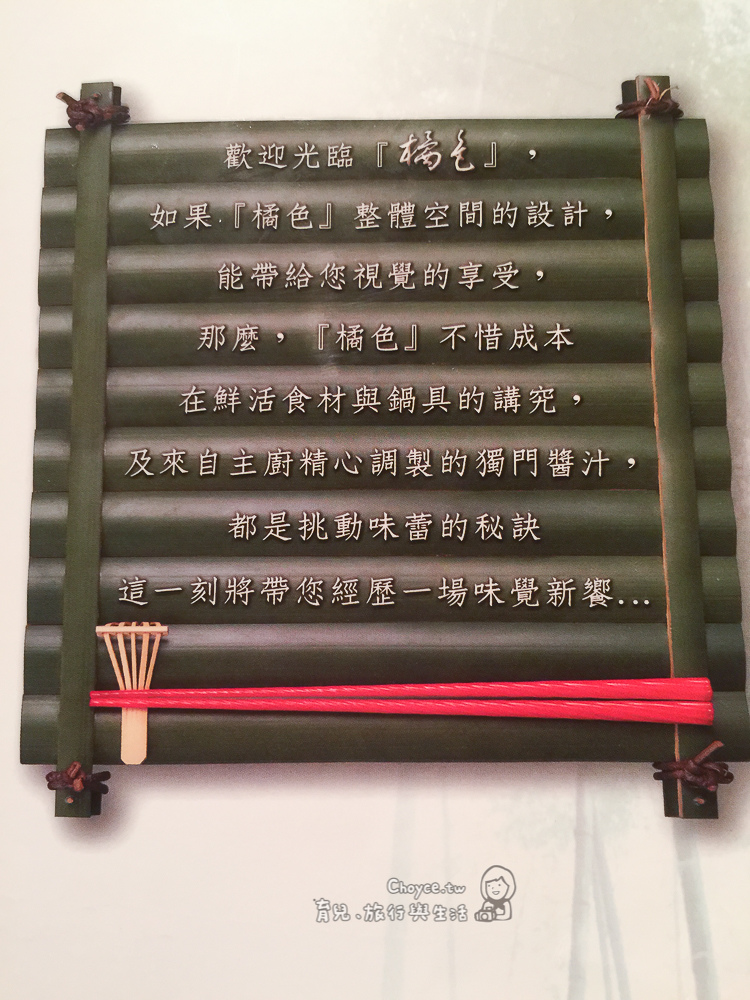 歡迎光臨『橘色』，
如果『橘色』整體空間的設計，
能帶給您視覺的享受，
那麼，『橘色』不惜成本
在鮮活食材與鍋具的講究，
及來自主廚精心調製的獨門醬汁，
都是挑動味蕾的秘訣
這一刻將帶您經歷一場味覺新饗...
Choyce.tw
育兒、旅行與生活